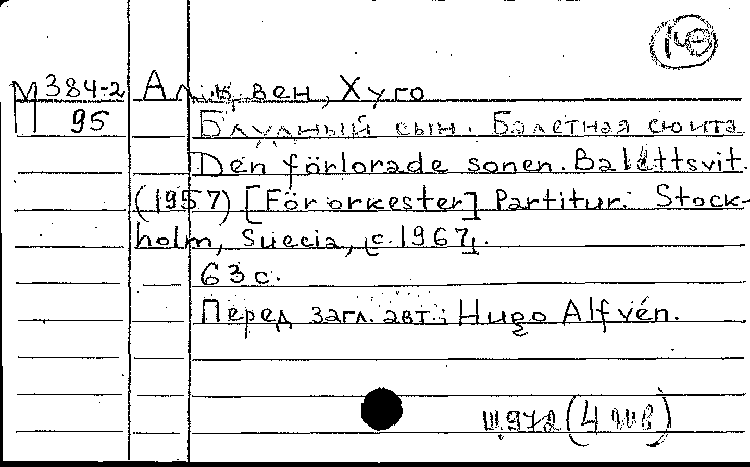 М 384-2 Альвен, Хуго
95 Блудный сын. Балетная сюита
Den förlorade sonen. Balettsvit.
(1957) [För orkester] Partitur. Stock-
holm, Suecia, [c. 1967].
63 с.
Перед загл. авт.: Hugo Alfvén.